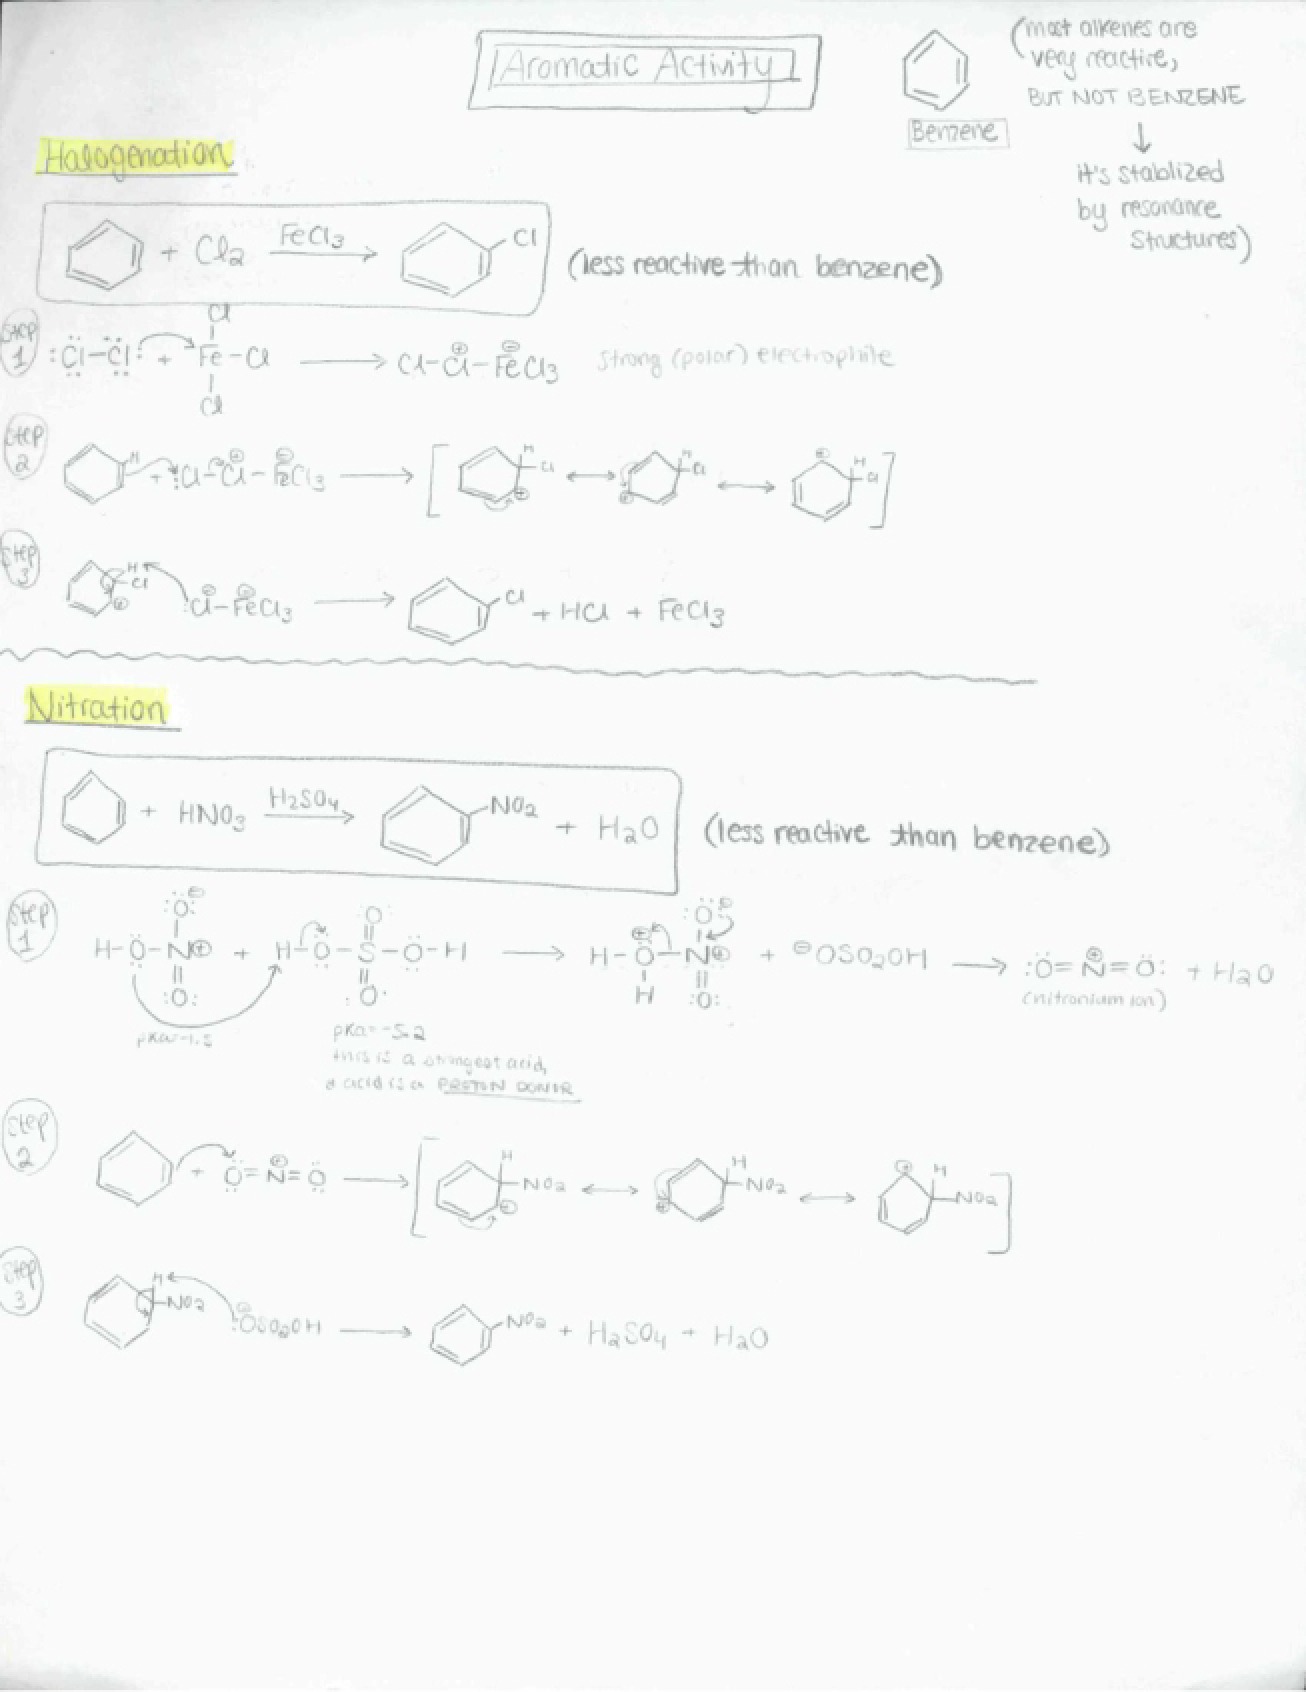 Aromatic Activity
(most alkenes are
very reactive,
BUT NOT BENZENE
Benzene
↓
it's stablized
by resonance
structures)
Halogenation
+ Cl2 FeCl3 → Cl
(less reactive than benzene)
Step 1
:Cl-Cl: + Fe-Cl → Cl-Cl⊕-Fe⊖Cl3 strong (polar) electrophile
Cl
Cl
Step 2
H + :Cl-Cl⊕-Fe⊖Cl3 → [ H Cl ⊕ ↔ H Cl ⊕ ↔ ⊕ H Cl ]
Step 3
H Cl ⊕ :Cl-FeCl3 → Cl + HCl + FeCl3
Nitration
+ HNO3 H2SO4 → NO2 + H2O
(less reactive than benzene)
Step 1
:O:⊖ O :O:⊖
H-O-N⊕ + H-O-S-O-H → H-O⊕-N⊕ + ⊖OSO2OH → :O=N⊕=O: + H2O
:O: O H :O: (nitronium ion)
pKa=-1.5 pKa=-5.2
this is a strongest acid,
a acid is a PROTON DONOR
Step 2
+ O=N⊕=O → [ H NO2 ⊕ ↔ H NO2 ⊕ ↔ ⊕ H NO2 ]
Step 3
H NO2 ⊖:OSO2OH → NO2 + H2SO4 + H2O